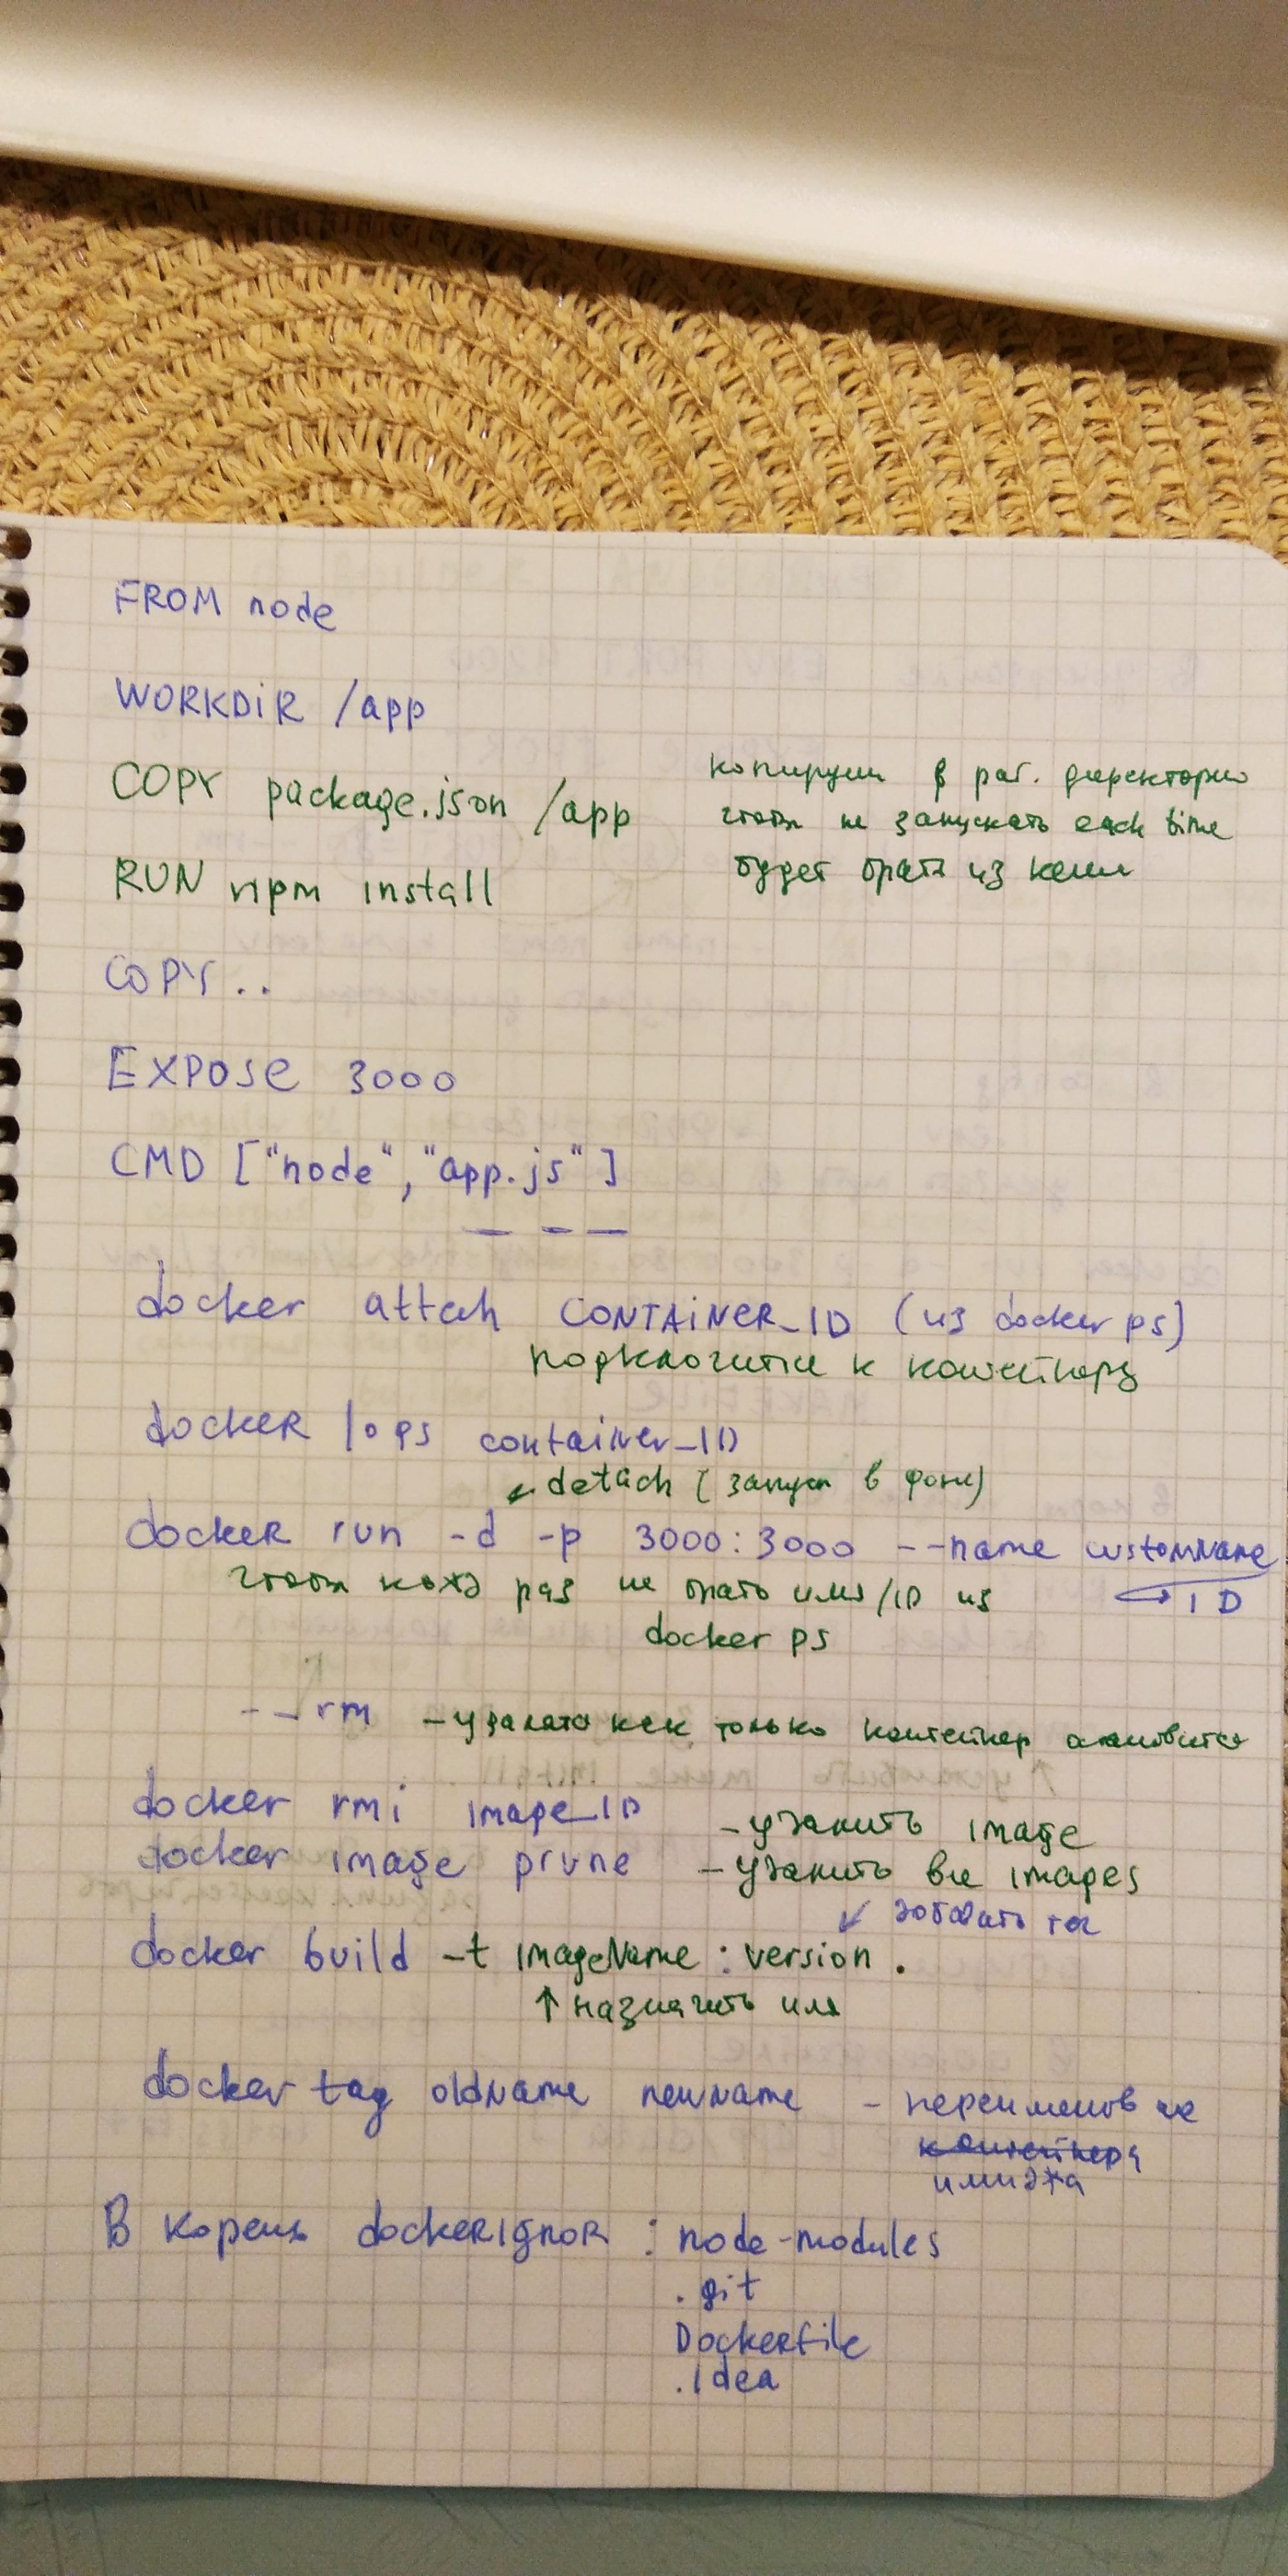 FROM node
WORKDIR /app
COPY package.json /app
копируем в раб. директорию
RUN npm install
чтобы не запускать each time
будет брать из кеша
COPY . .
EXPOSE 3000
CMD ["node", "app.js"]
docker attach CONTAINER_ID (из docker ps)
подключиться к контейнеру
docker logs container_ID
detach (запуск в фоне)
docker run -d -p 3000:3000 --name customName
чтобы кажд раз не брать имя/ID из
ID
docker ps
--rm - удалять как только контейнер остановится
docker rmi image_ID - удалить image
docker image prune - удалить все images
добавить тег
docker build -t imageName : version .
↑ назначить имя
docker tag oldName newName - переименов ие
контейнера
имиджа
В корень dockerignor : node-modules
.git
Dockerfile
.idea